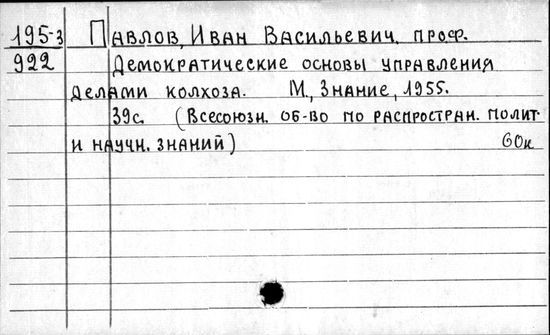 195-3 Павлов, Иван Васильевич, проф.
922 Демократические основы управления
делами колхоза. М., Знание, 1955.
39с. (Всесоюзн. об-во по распростран. полит.
и научн. знаний)
60к